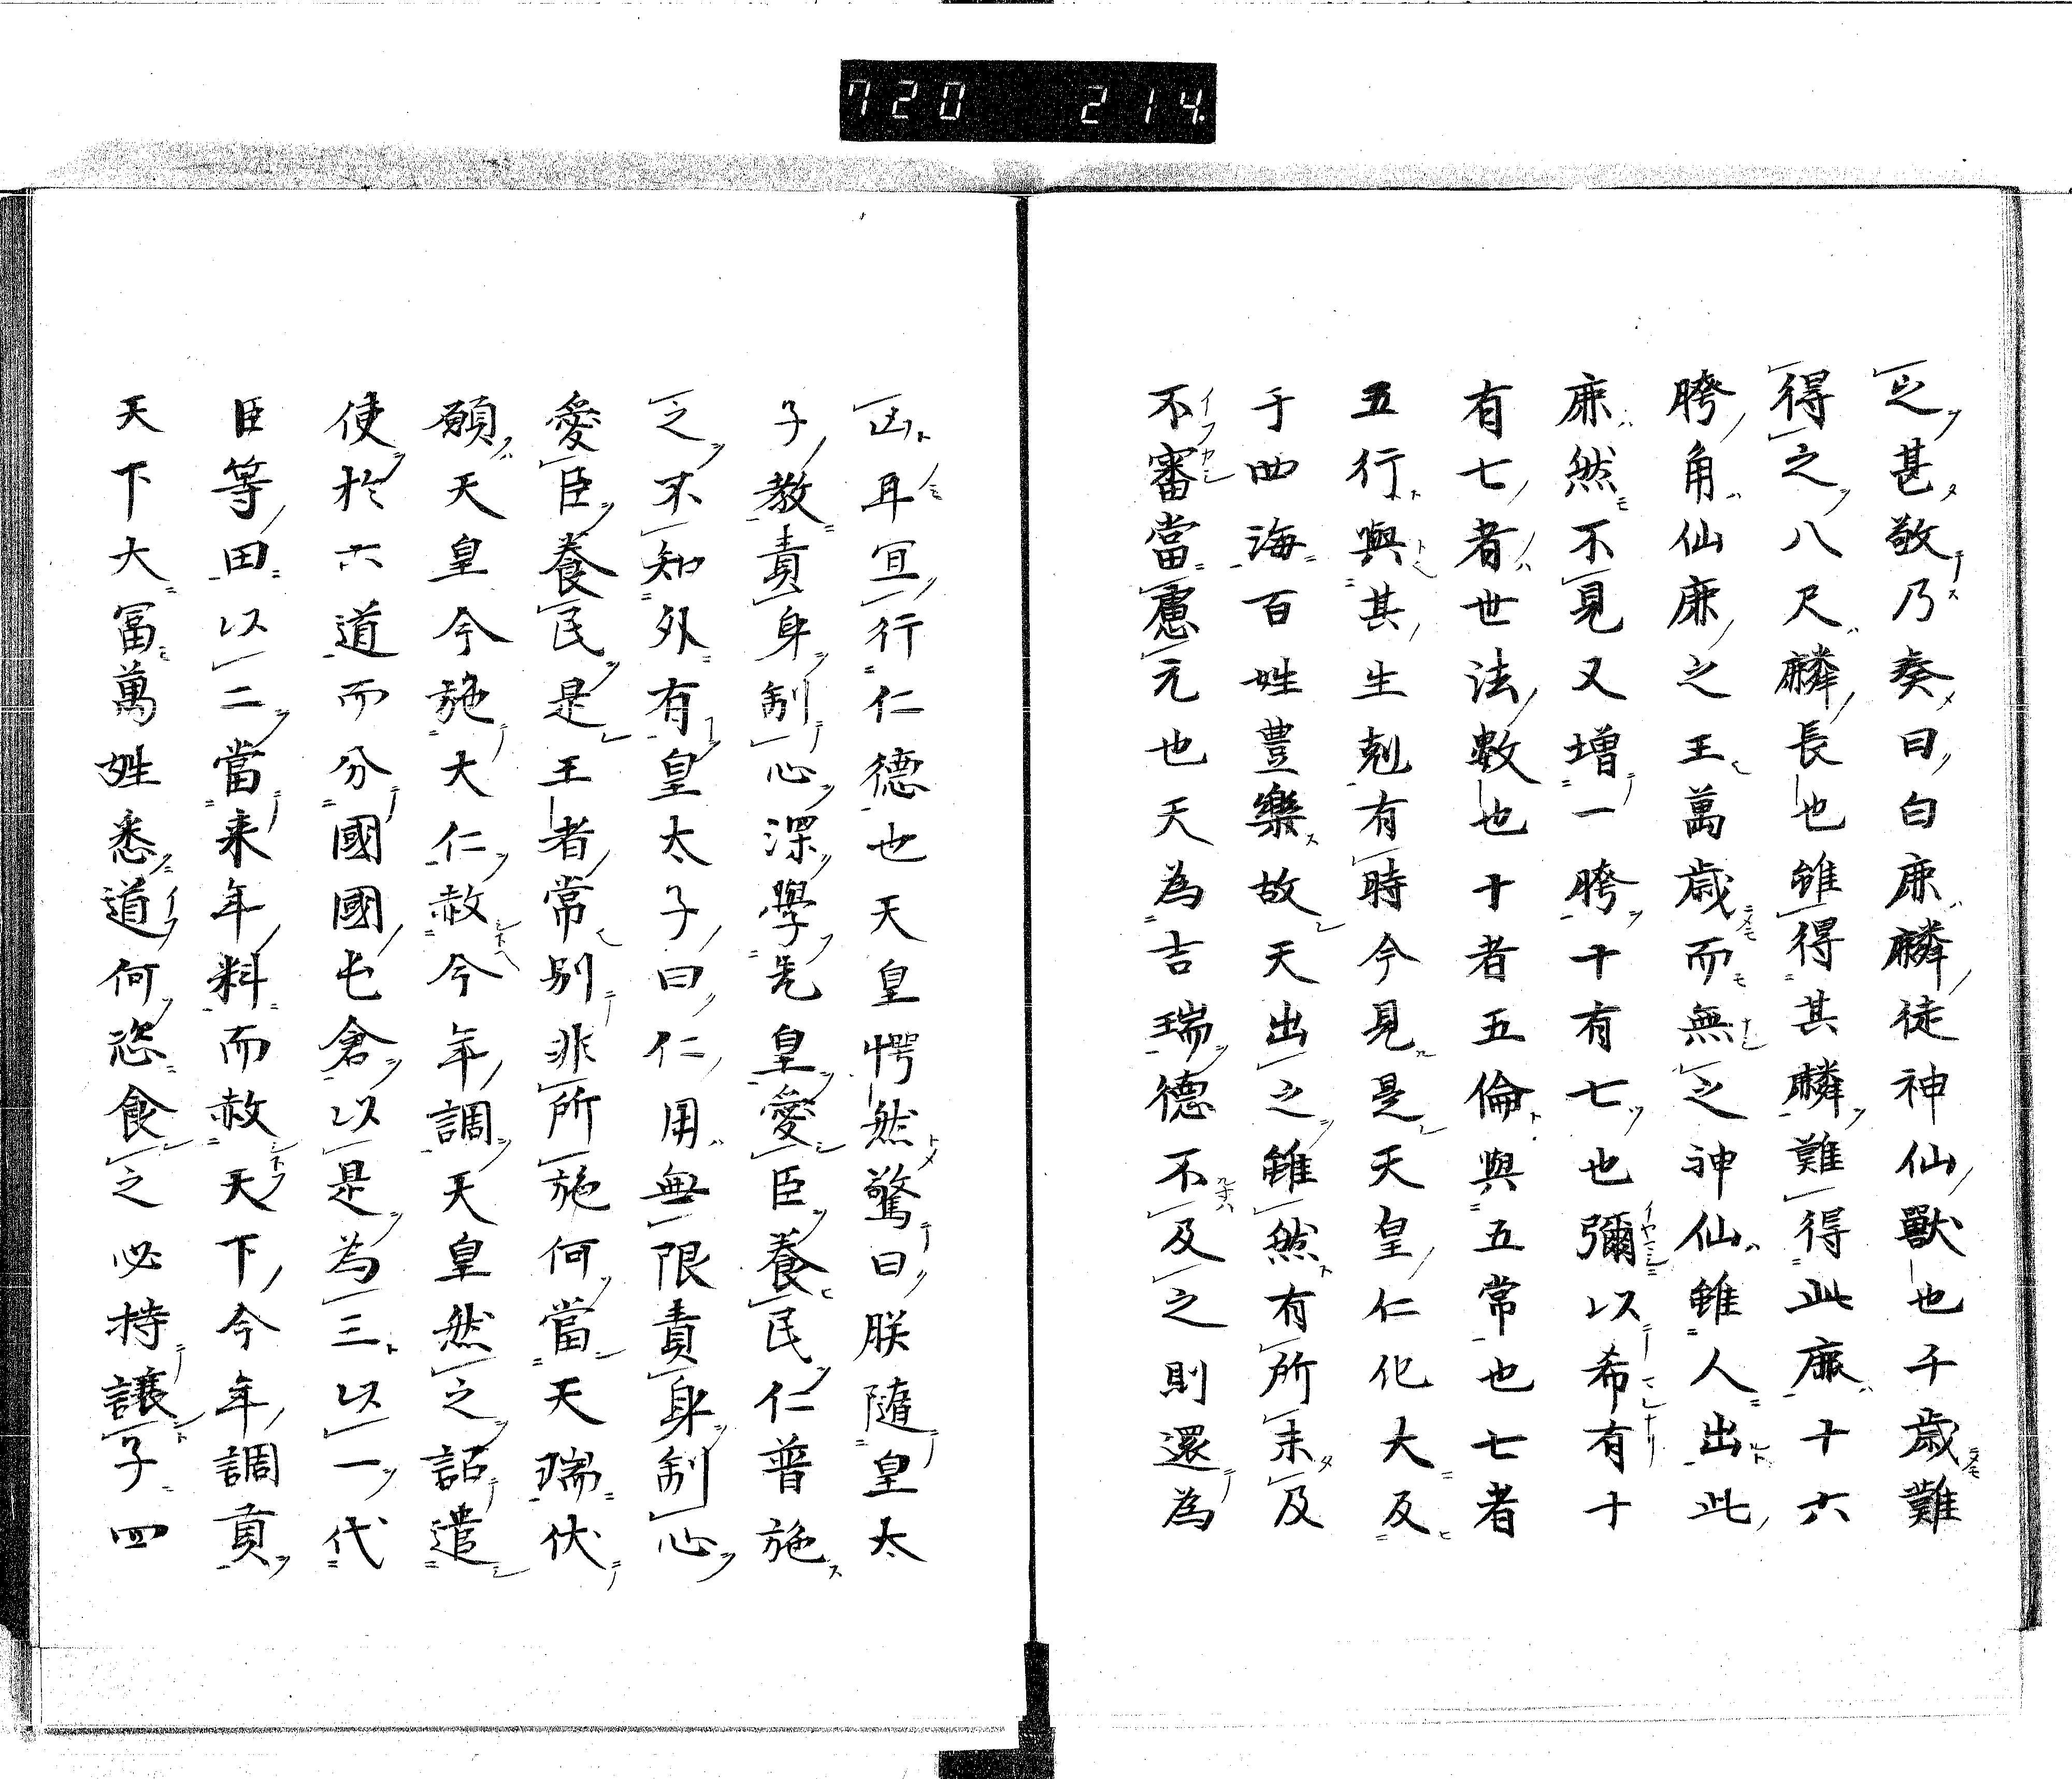 720 214.
之甚敬乃奏曰白鹿麟徒神仙獸也千歳難
得之八尺麟長也雖得其麟難得此鹿十六
胯角仙鹿之王萬歳而無之神仙雖人出此
鹿然不見又増一胯十有七也彌以希有十
有七者世法數也十者五倫與五常也七者
五行與其生剋有時今見是天皇仁化大及
于四海百姓豊樂故天出之雖然有所未及
不審當慮元也天為吉瑞德不及之則還為
凶耳宜行仁德也天皇愕然驚曰朕随皇太
子教責身制心深學先皇愛臣養民仁普施
之不知外有皇太子曰仁用無限責身制心
愛臣養民是王者常別非所施何當天瑞伏
願天皇今施大仁赦今年調天皇然之詔遣
使於六道而分國國屯倉以是為三以一代
臣等田以二當来年料而赦天下今年調貢
天下大冨萬姓悉道何恣食之必持譲子四